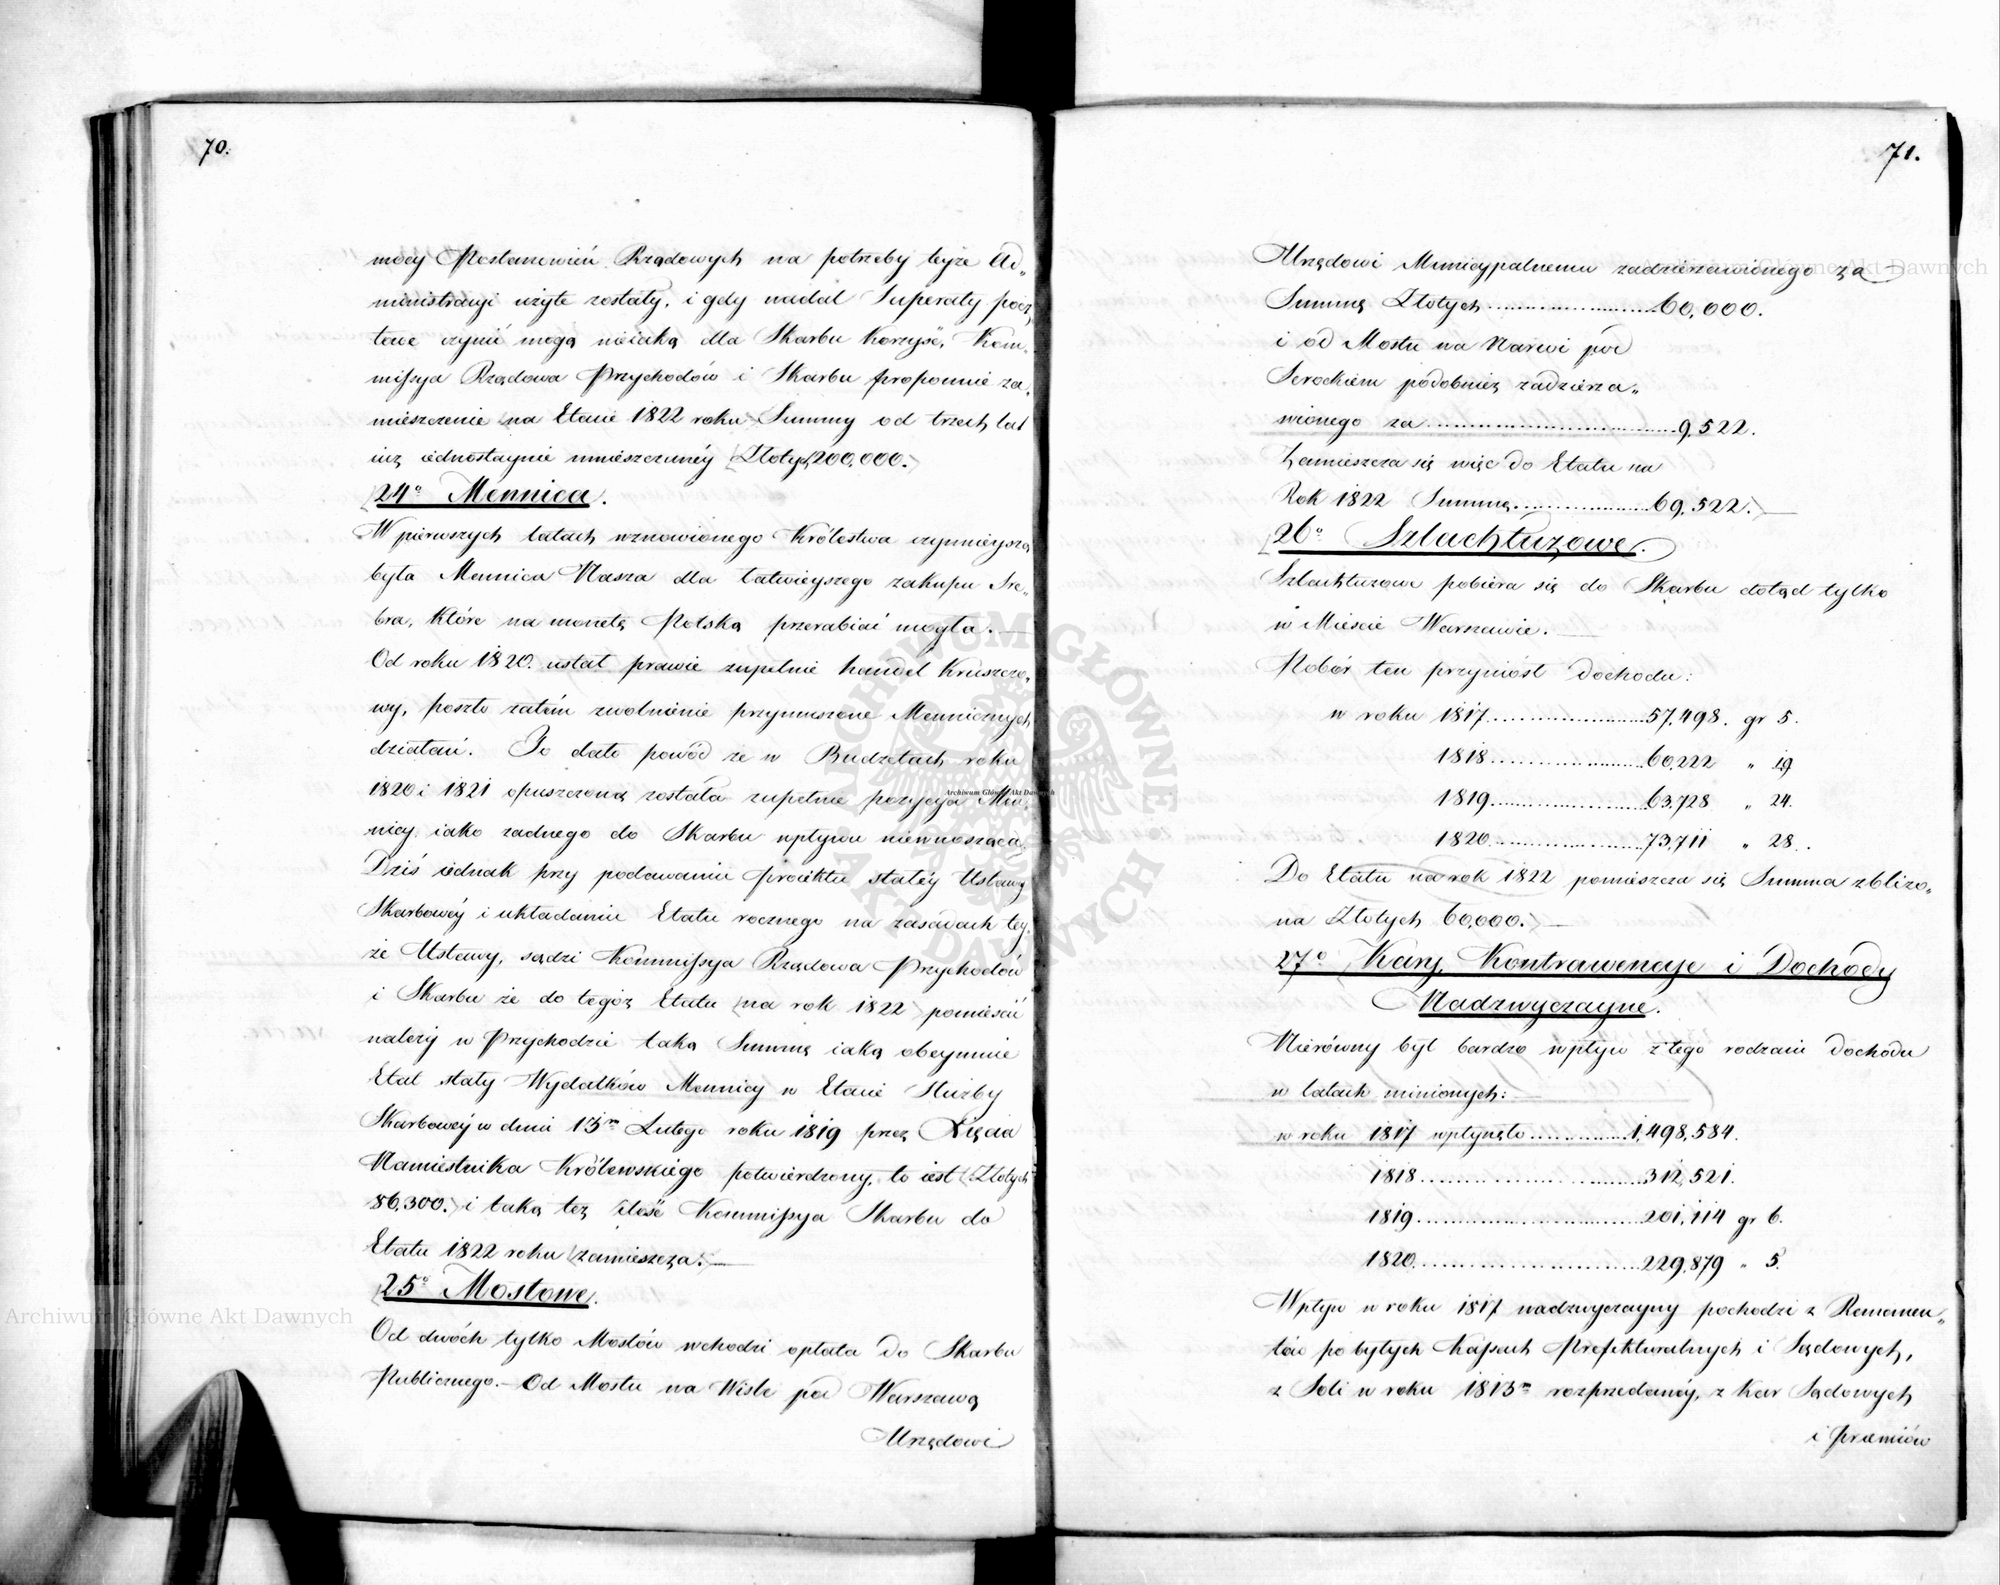 70.
mocy Postanowień Rządowych na potrzeby teyże Ad„
ministracyi użyte zostały, i gdy nadal Superaty pocz„
towe czynić mogą nieiaką dla Skarbu Korzyść, Kom„
missya Rządowa Przychodów i Skarbu proponuie za„
mieszczenie na Etacie 1822 roku Summy od trzech lat
iuż iednostaynie umieszczanéy Złotych 200,000.
24o Mennica.
W pierwszych latach wznowionego Królestwa czynnieyszą
była Mennica Nasza dla łatwieyszego zakupu Sre„
bra, które na monetę Polską przerabiać mogła.
Od roku 1820. ustał prawie zupełnie handel Kruszco„
wy, poszło zatém zwolnienie przymuszone Menniczych
działań. To dało powód że w Budżetach roku
1820 i 1821 opuszczoną została zupełnie pozycya Men„
nicy, iako żadnego do Skarbu wpływu niewnosząca.
Dziś iednak przy podawaniu proiektu stałéy Ustawy
Skarbowéy i układaniu Etatu rocznego na zasadach tey„
że Ustawy, sądzi Kommissya Rządowa Przychodów
i Skarbu że do tegoż Etatu na rok 1822 pomieścić
należy w Przychodzie taką Summę iaką obeymuie
Etat stały Wydatków Mennicy w Etacie Służby
Skarbowéy w dniu 13m Lutego roku 1819 przez Xięcia
Namiestnika Królewskiego potwierdzony, to iest Złotych
86,300. i taką też ilość Kommissya Skarbu do
Etatu 1822 roku zamieszcza.
25o Mostowe.
Od dwóch tylko Mostów wchodzi opłata do Skarbu
Publicznego. – Od Mostu na Wiśle pod Warszawą
Urzędowi
71.
Urzędowi Municypalnemu zadzierzawionego za
Summę Złotych 60,000.
i od Mostu na Narwi pod
Serockiem podobnież zadzierza„
wionego za 9,522.
Zamieszcza się więc do Etatu na
Rok 1822 Summę 69,522.
26o Szlachtuzowe.
Szlachtuzowe pobiera się do Skarbu dotąd tylko
w Mieście Warszawie.
Pobór ten przyniósł dochodu:
w roku 1817 57,498. gr 5.
1818 60,222 „ 19
1819 63,728 „ 24.
1820 73,711 „ 28.
Do Etatu na rok 1822 pomieszcza się Summa zbliżo„
na Złotych 60,000.
27o Kary, Kontrawencye i Dochody
Nadzwyczayne.
Nierówny był bardzo wpływ z tego rodzaiu dochodu
w latach minionych:
w roku 1817 wpłynęło 1,498,584.
1818 312,521.
1819 201,114 gr 6.
1820 229,879 „ 5.
Wpływ w roku 1817 nadzwyczayny pochodzi z Remanen„
tów po byłych Kassach Prefekturalnych i Sądowych,
z Soli w roku 1813m rozprzedanéy, z Kar Sądowych
i Praemiów
Archiwum Główne Akt Dawnych
Archiwum Główne Akt Dawnych
Archiwum Główne Akt Dawnych
ARCHIWUM GŁÓWNE AKT DAWNYCH